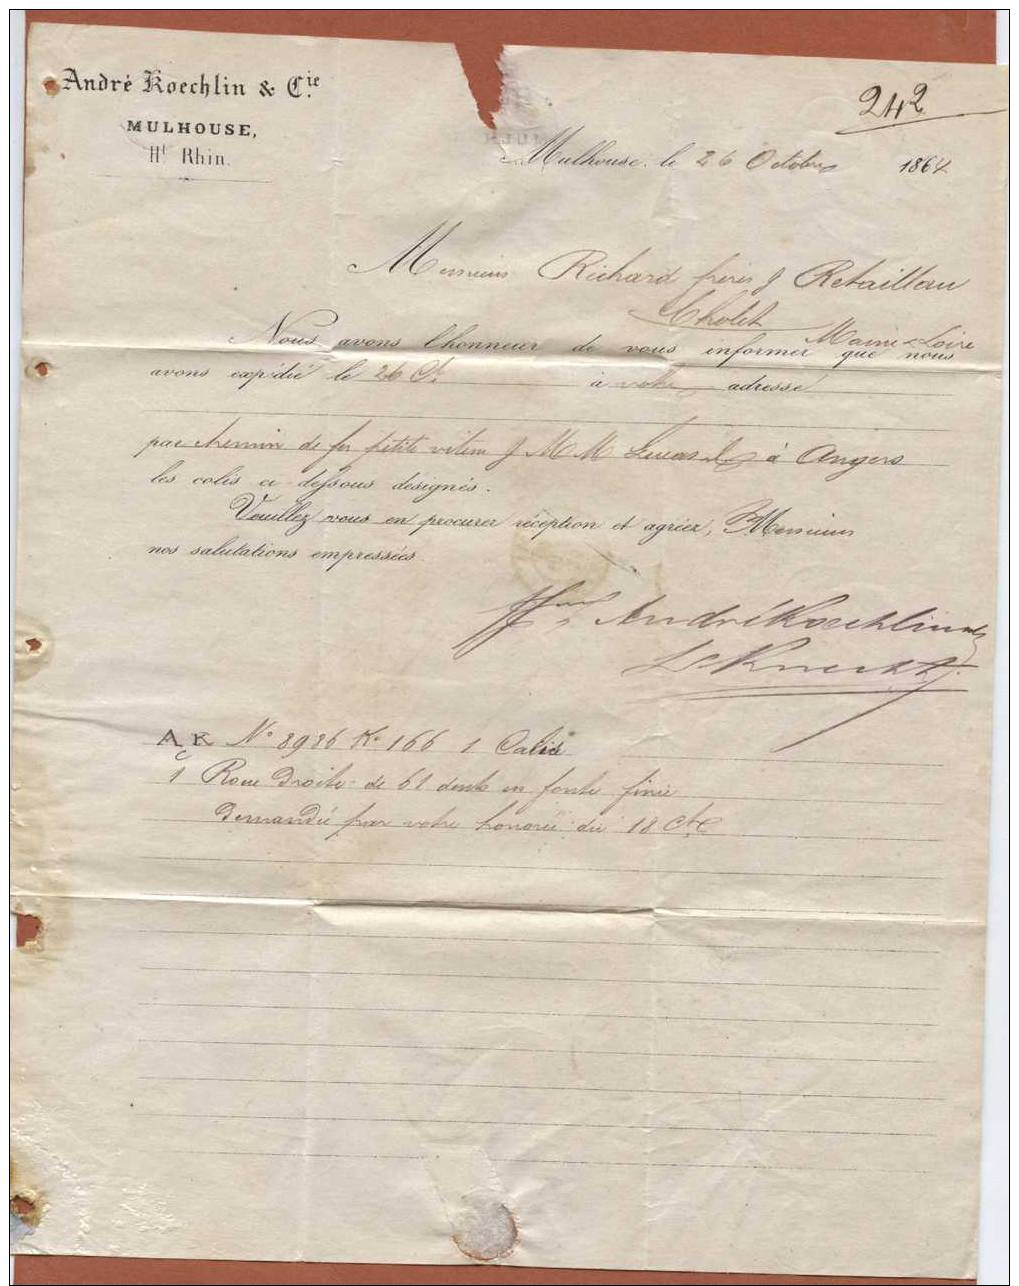 André Koechlin & Cie.
MULHOUSE,
Ht Rhin.
242
Mulhouse, le 26 Octobre 1864
Messieurs Richard frères & Retailleau
Cholet
Maine & Loire
Nous avons l'honneur de vous informer que nous
avons expédié le 26 Ct à votre adresse
par chemin de fer petite vitesse & MM Lucas à Angers
les colis ci dessous designés.
Veuillez vous en procurer réception et agréer, Messieurs
nos salutations empressées
André Koechlin & Cie
AK No 8986 Ko 166 1 Colis
C
1 Roue Droite de 61 dents en fonte finie
Demandée par votre honorée du 18 Ct